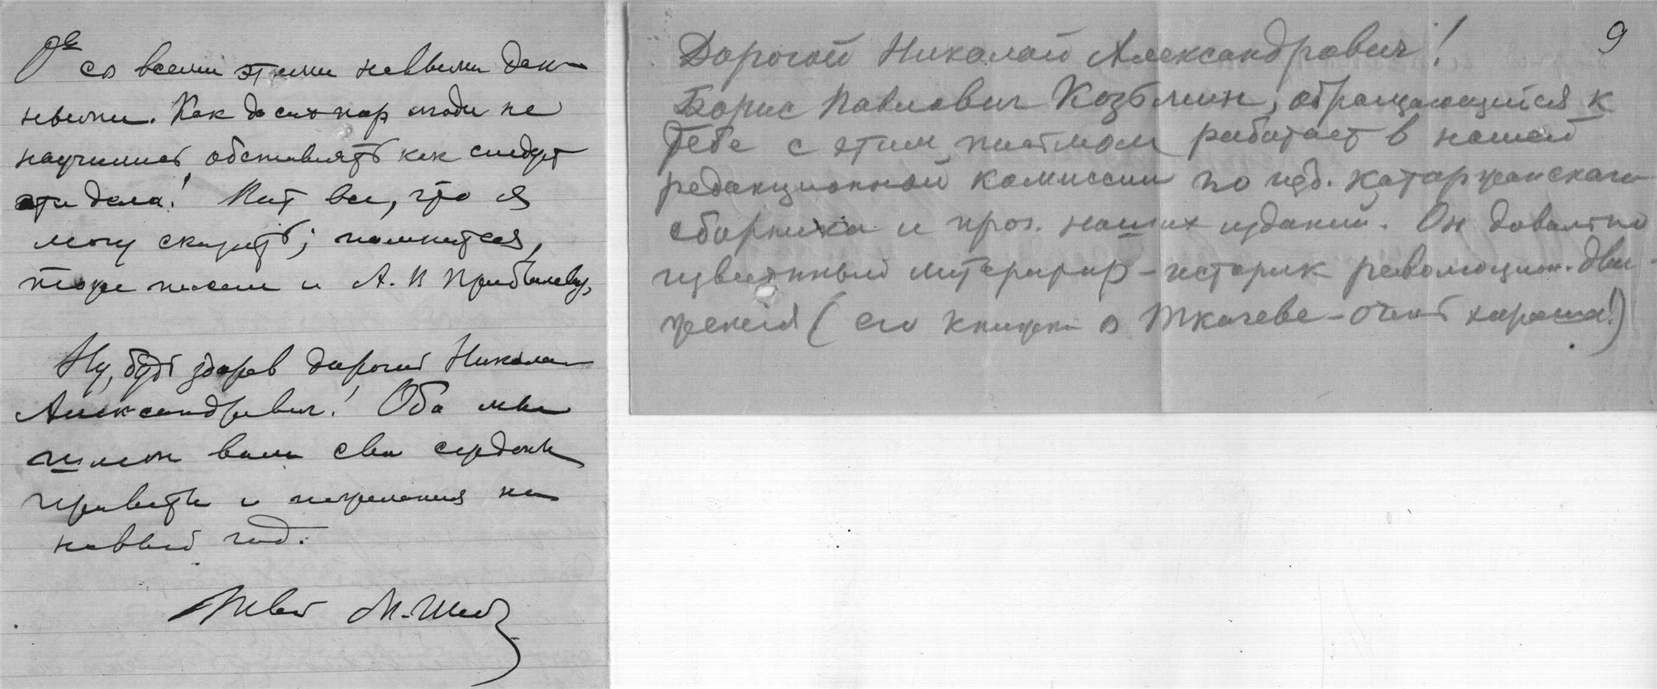 со всеми этими новыми дан-
ными. Как до сих пор люди не
научились обставлять как следует
эти дела! Вот все, что я
могу сказать; помнится,
тоже писал и А. В Прибылеву,
Ну, будь здоров дорогой Николай
Александрович! Оба мы
шлем вам свои сердечн
приветы и пожелания на
новый год.
Твой М.
9
Дорогой Николай Александрович!
Борис Павлович Козьмин, обращающийся к
Тебе с этим письмом работает в нашей
редакционной комиссии по изд. каторжанского
сборника и проч. наших изданий. Он довольно
известный литератор-историк революцион. дви-
жения (его книжка о Ткачеве-очень хороша!)